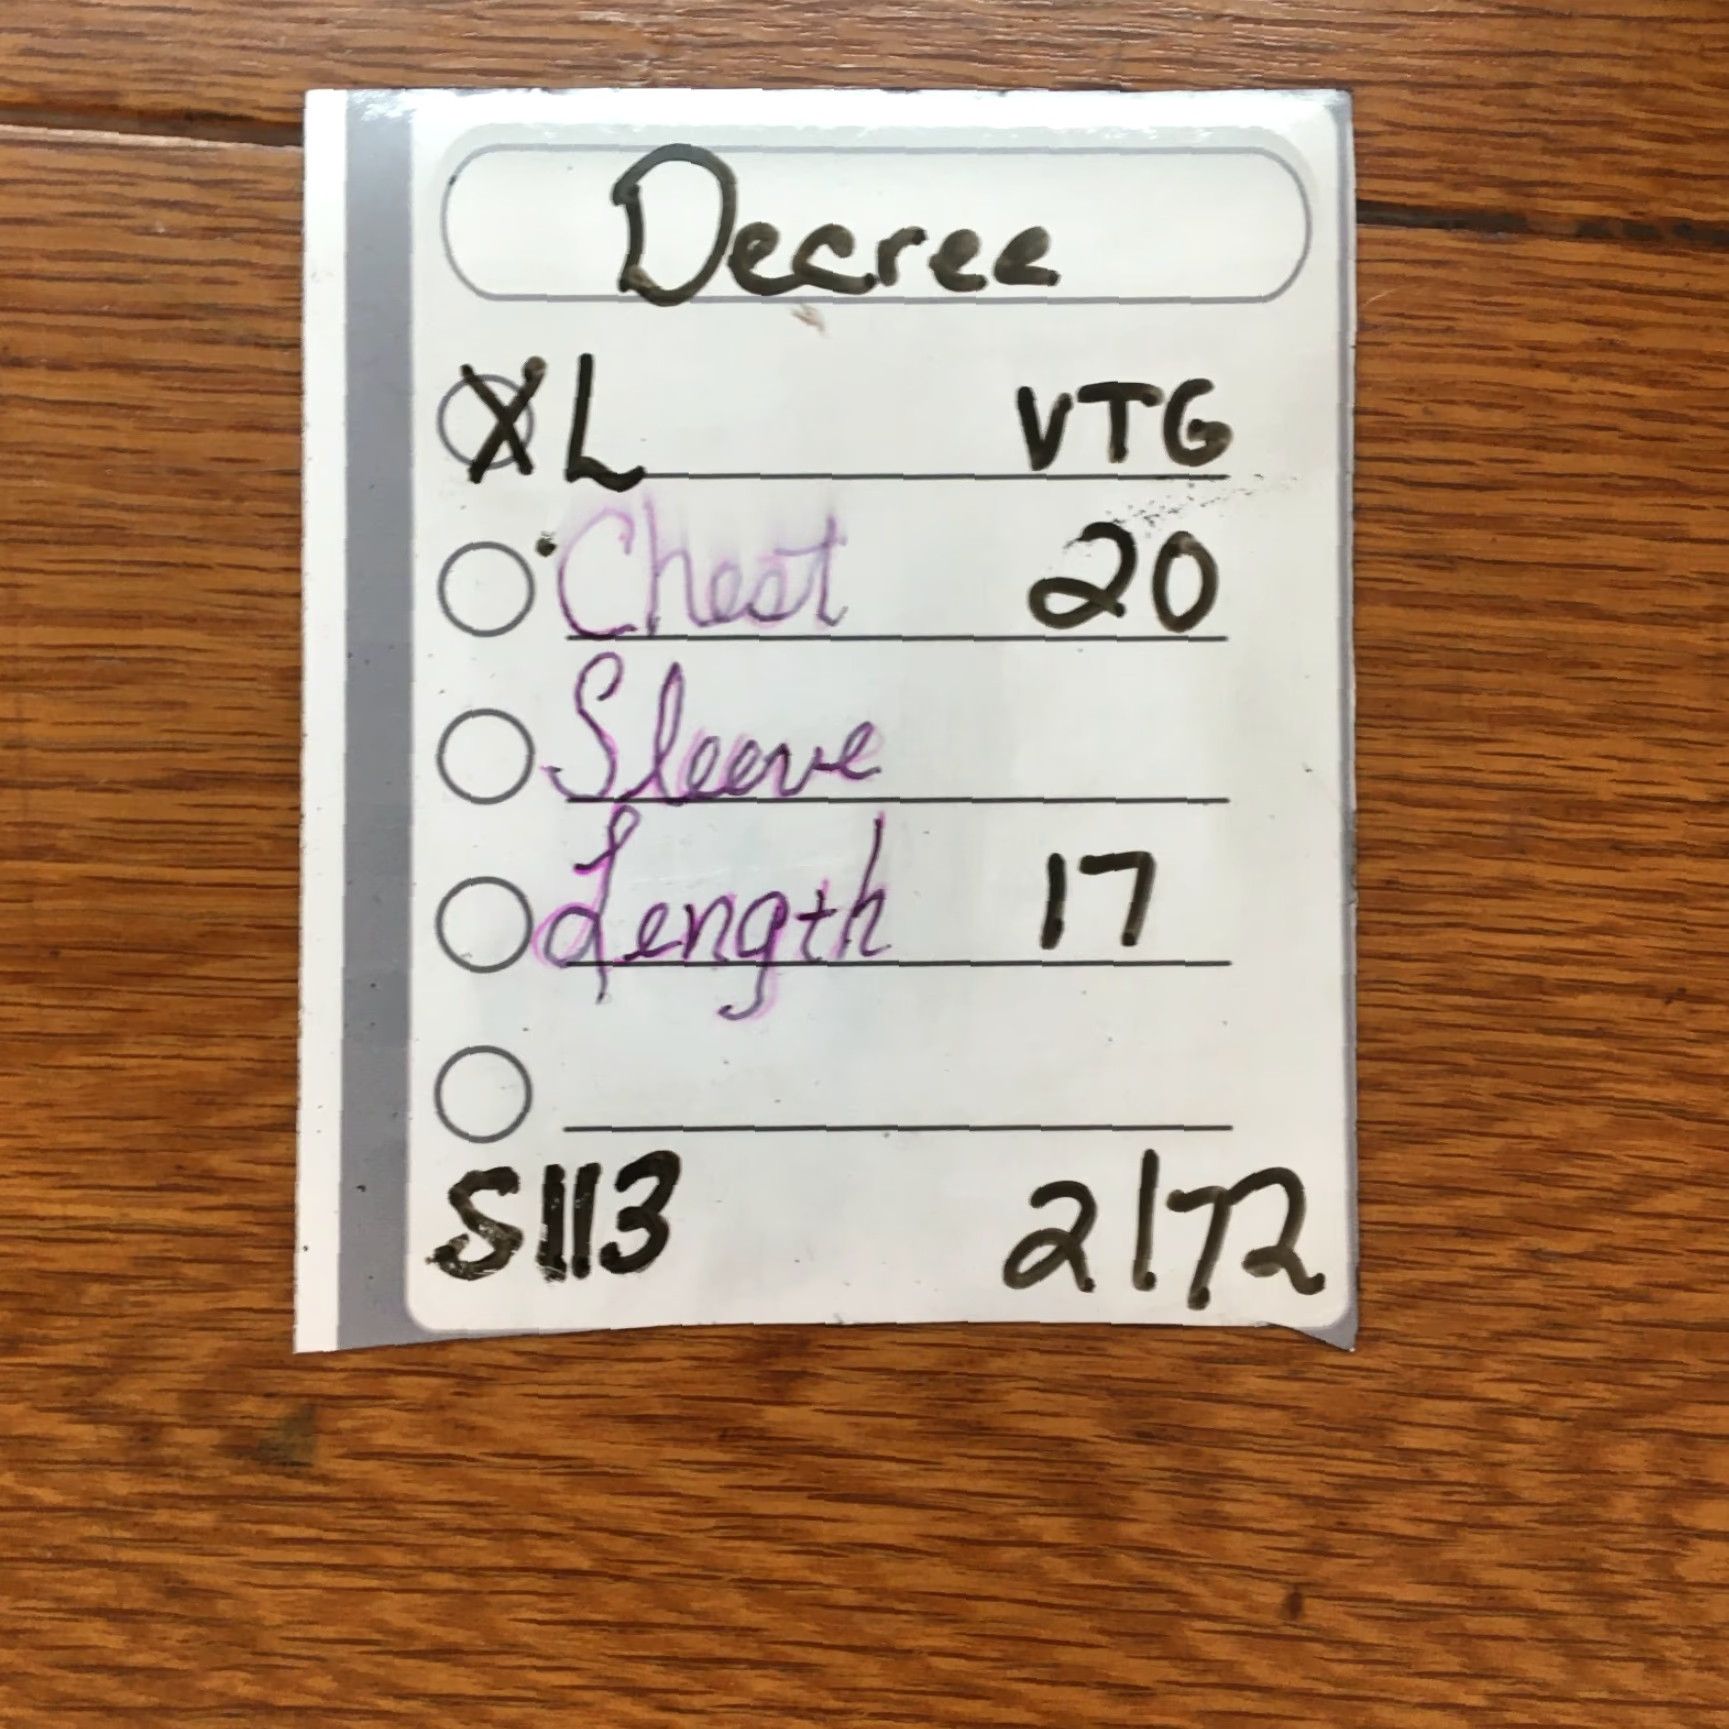 Decree
XL VTG
Chest 20
Sleeve
Length 17
S113 2172